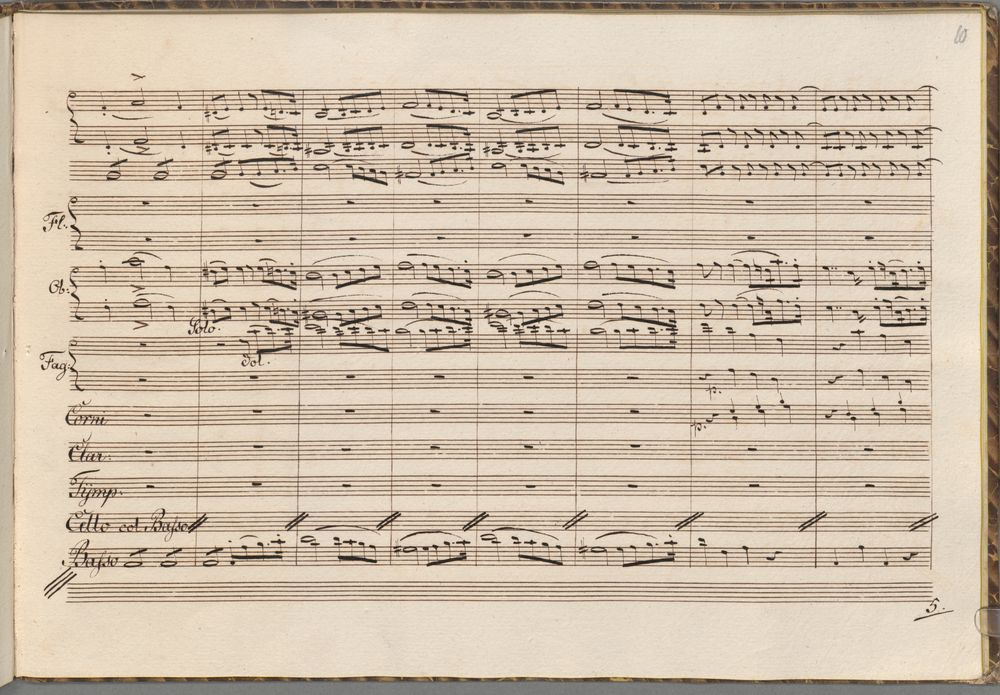 10
Fl:
Ob:
Solo.
dol.
Fag:
p.
Corni
p.
Clar:
Tÿmp:
Cello col Basso
Basso
5.